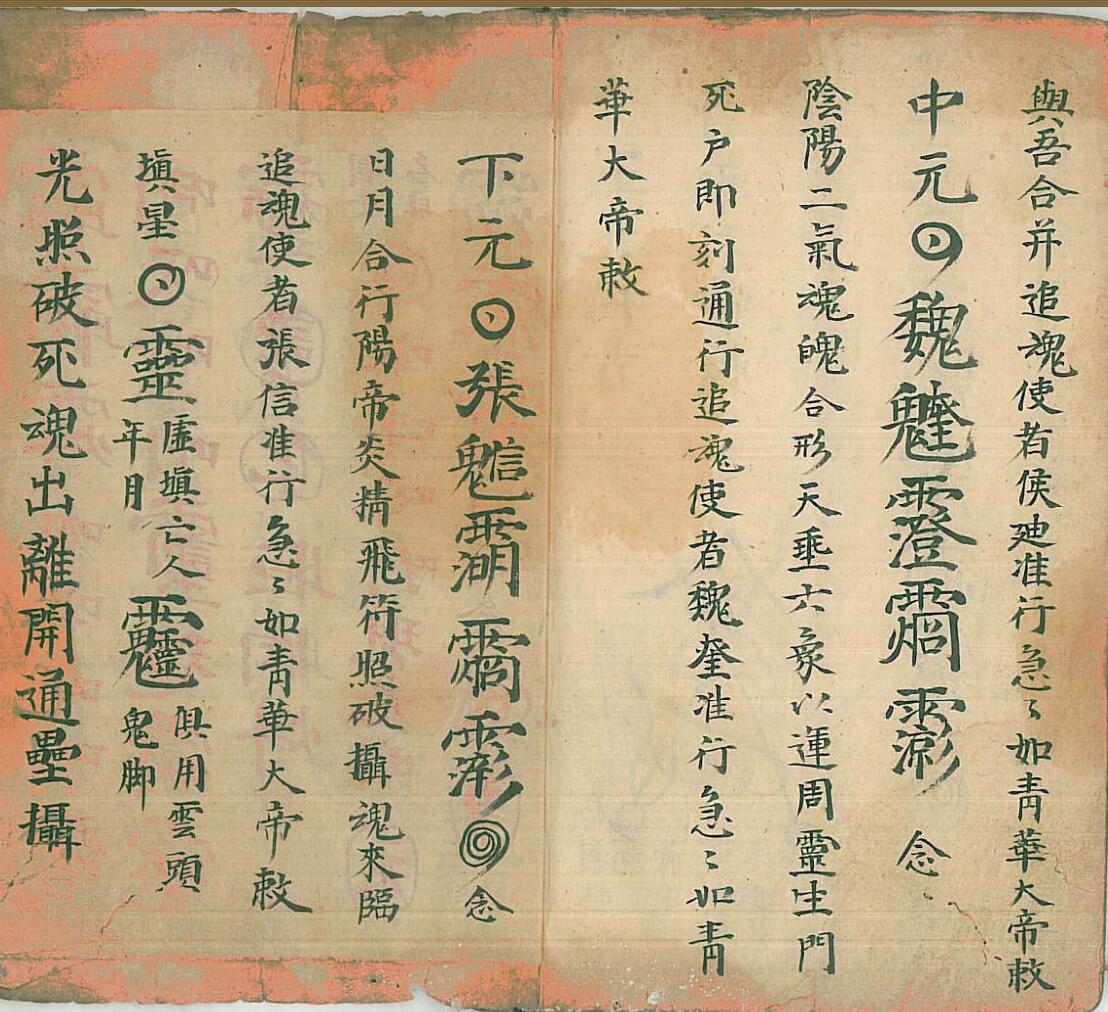 與吾合并追魂使者侯廸准行急〻如青華大帝敕
中元魏念〻
陰陽二氣魂魄合形天垂六象以運周靈生門
死户即刻通行追魂使者魏准行急〻如青
華大帝敕
下元〇張念
日月合行陽帝炎精飛符照破攝魂來臨
追魂使者張信准行急〻如青華大帝敕
塡星靈
虛塡亡人
年月
俱用雲頭
鬼脚
光照破死魂出離開通壘攝